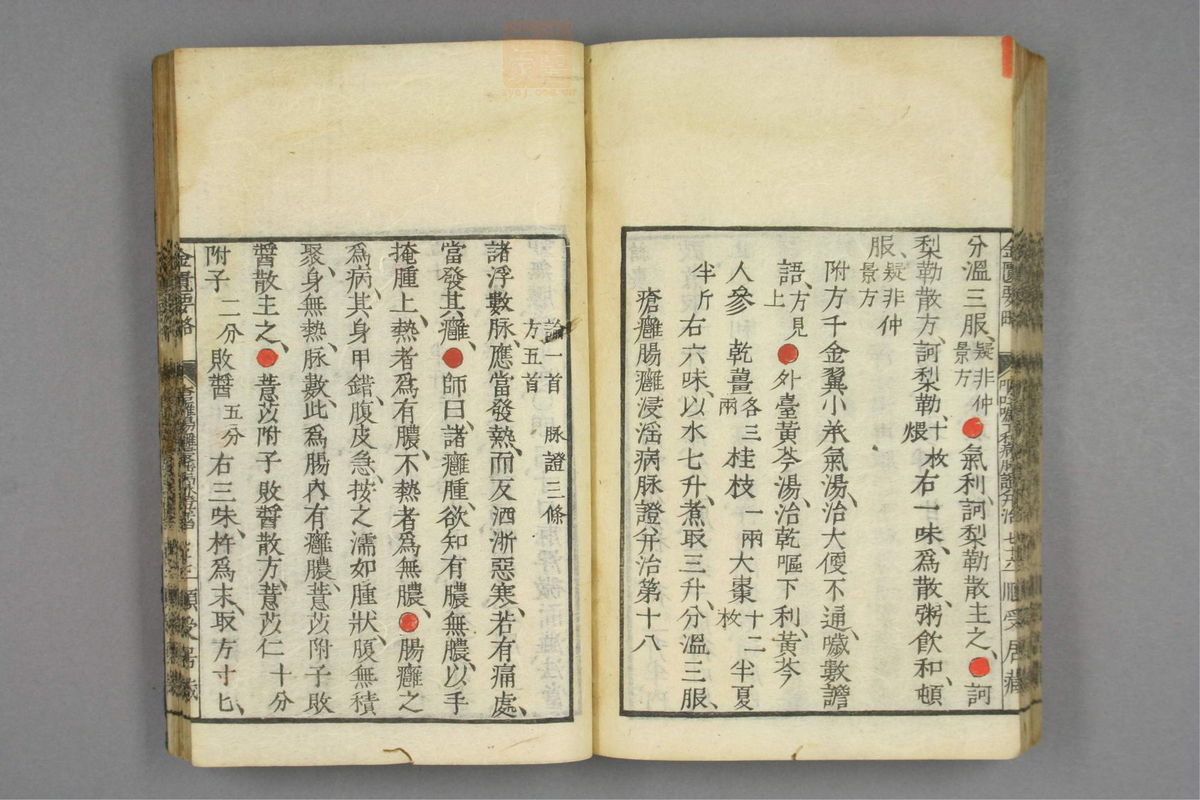 分溫三服、疑非仲景方●氣利、訶梨勒散主之、●訶
梨勒散方、訶梨勒、十枚煨右一味、爲散、粥飲和、頓
服、疑非仲景方
附方千金翼小承氣湯、治大便不通、噦數譫
語、方見上●外臺黃芩湯、治乾嘔下利、黃芩
人參乾薑各三兩桂枝一兩大棗十二枚半夏
半斤右六味、以水七升、煮取三升、分溫三服、
瘡癰腸癰浸淫病脉證并治第十八
論一首 脉證三條
方五首
諸浮數脉、應當發熱、而反洒淅惡寒、若有痛處、
當發其癰、●師曰、諸癰腫、欲知有膿無膿、以手
掩腫上、熱者爲有膿、不熱者爲無膿、●腸癰之
爲病、其身甲錯、腹皮急、按之濡、如腫狀、腹無積
聚、身無熱、脉數、此爲腸內有癰膿、薏苡附子敗
醬散主之、●薏苡附子敗醬散方、薏苡仁十分
附子二分敗醬五分右三味、杵爲末、取方寸匕、
金匱要略
順受居藏